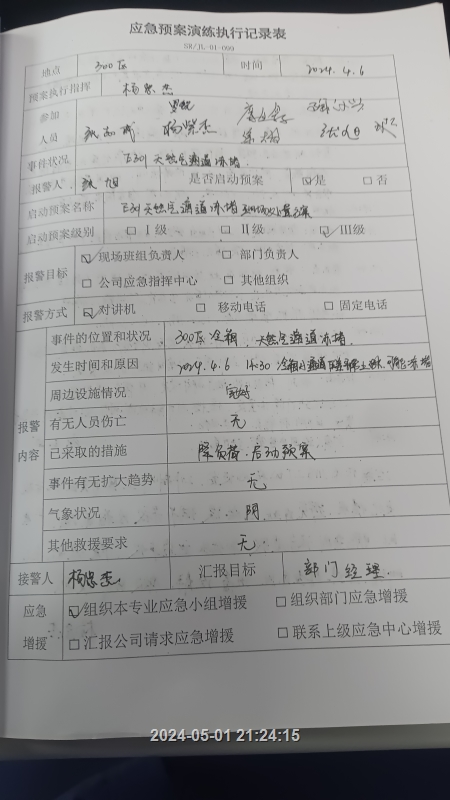 应急预案演练执行记录表
SX/JL-01-099
地点 300区 时间 2024.4.6
预案执行指挥 杨忠杰
参加
人员
事件状况 E301天然气通道冻堵
报警人 旭 是否启动预案 ☑是 □否
启动预案名称 E301天然气通道冻堵现场处置方案
启动预案级别 □Ⅰ级 □Ⅱ级 ☑Ⅲ级
报警目标 ☑现场班组负责人 □部门负责人
□公司应急指挥中心 □其他组织
报警方式 ☑对讲机 □移动电话 □固定电话
报警内容
事件的位置和状况 300区冷箱,天然气通道冻堵.
发生时间和原因 2024.4.6 14:30 冷箱
周边设施情况 完好
有无人员伤亡 无
已采取的措施 降负荷.启动预案
事件有无扩大趋势 无
气象状况 阴
其他救援要求 无
接警人 杨忠杰 汇报目标 部门经理.
应急增援 ☑组织本专业应急小组增援 □组织部门应急增援
□汇报公司请求应急增援 □联系上级应急中心增援
2024-05-01 21:24:15